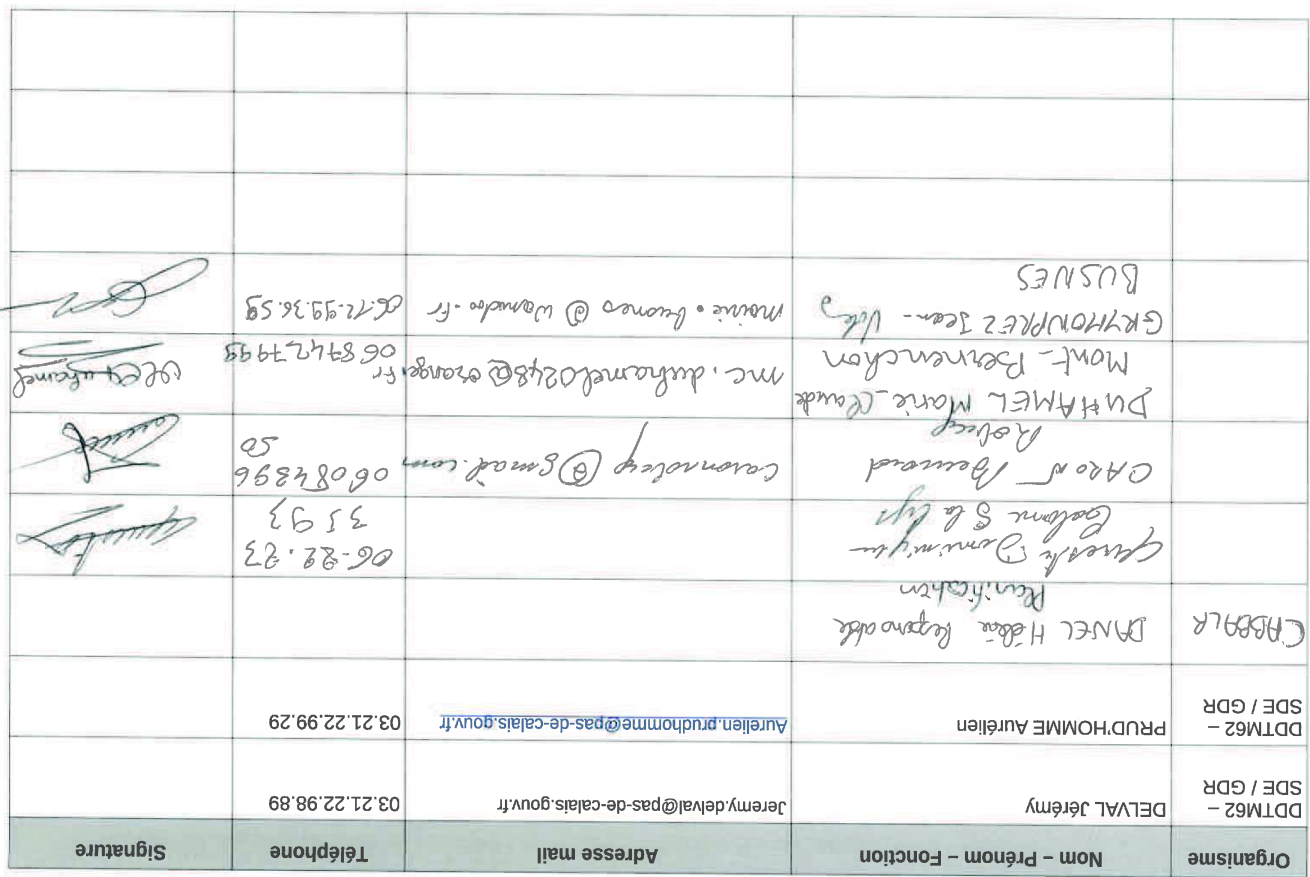 Organisme Nom – Prénom – Fonction Adresse mail Téléphone Signature
DDTM62 –
SDE / GDR
DELVAL Jérémy
Jeremy.delval@pas-de-calais.gouv.fr
03.21.22.98.89
DDTM62 –
SDE / GDR
PRUD'HOMME Aurélien
Aurelien.prudhomme@pas-de-calais.gouv.fr
03.21.22.99.29
CABBALR
DANEL Responsable
Planification
Calonne S la Lys
06-22.23
3593
CARON Bernard
Robecq
caronrobecq@gmail.com
06084396
50
DUHAMEL Marie-Claude
Mont-Bernenchon
mc.duhamel0248@orange.fr
0687427999
GRYMONPREZ Jean-
BUSNES
mairie.busnes@wanadoo.fr
06.12.99.36.59